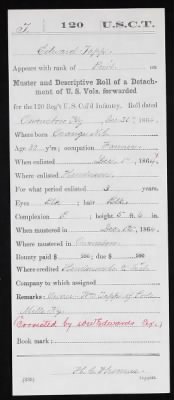 T. | 120 | U.S.C.T.
Edward Tapp
Appears with rank of Pvt.
Muster and Descriptive Roll of a Detachment of U. S. Vols. forwarded
for the 120 Reg't U.S. Col'd Infantry. Roll dated
Owensboro Ky, 186
Where born Orange N.C.
Age y'rs; occupation Farmer
When enlisted Dec 186
Where enlisted Henderson
For what period enlisted 3 years.
Eyes Blk; hair Blk.
Complexion; height 5 ft. 6 in.
When mustered in Dec 186
Where mustered in Owensboro
Bounty paid $ 100; due $ 100
Where credited
Company to which assigned
Remarks: Owner Tapp of
Mills Ky.
Book mark:
Copyist.